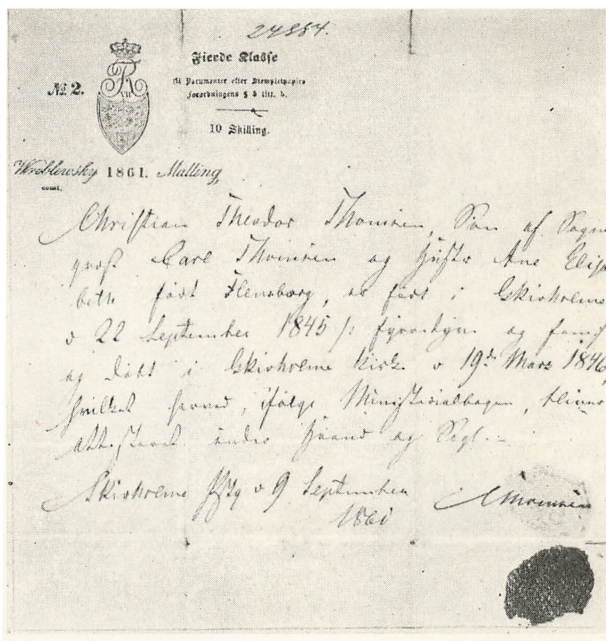 24884.
Fierde Klasse
No. 2.
til Documenter efter Stempelpapirs
Forordningens § 5 litr. b.
10 Skilling.
Wroblewsky 1861. Malling
Christian Theodor Thomsen, Søn af Sogne
præst Carl Thomsen og Hustru Ane Elisa
beth født Flensborg, er født i Skivholme
d 22 September 1845 /: fyrretyve og fem /
og døbt i Skivholme Kirke d 19de Marz 1846,
hvilket herved, ifølge Ministerialbogen, bliver
attesteret under Haand og Segl.
Skivholme d 9 September
1861
CThomsen